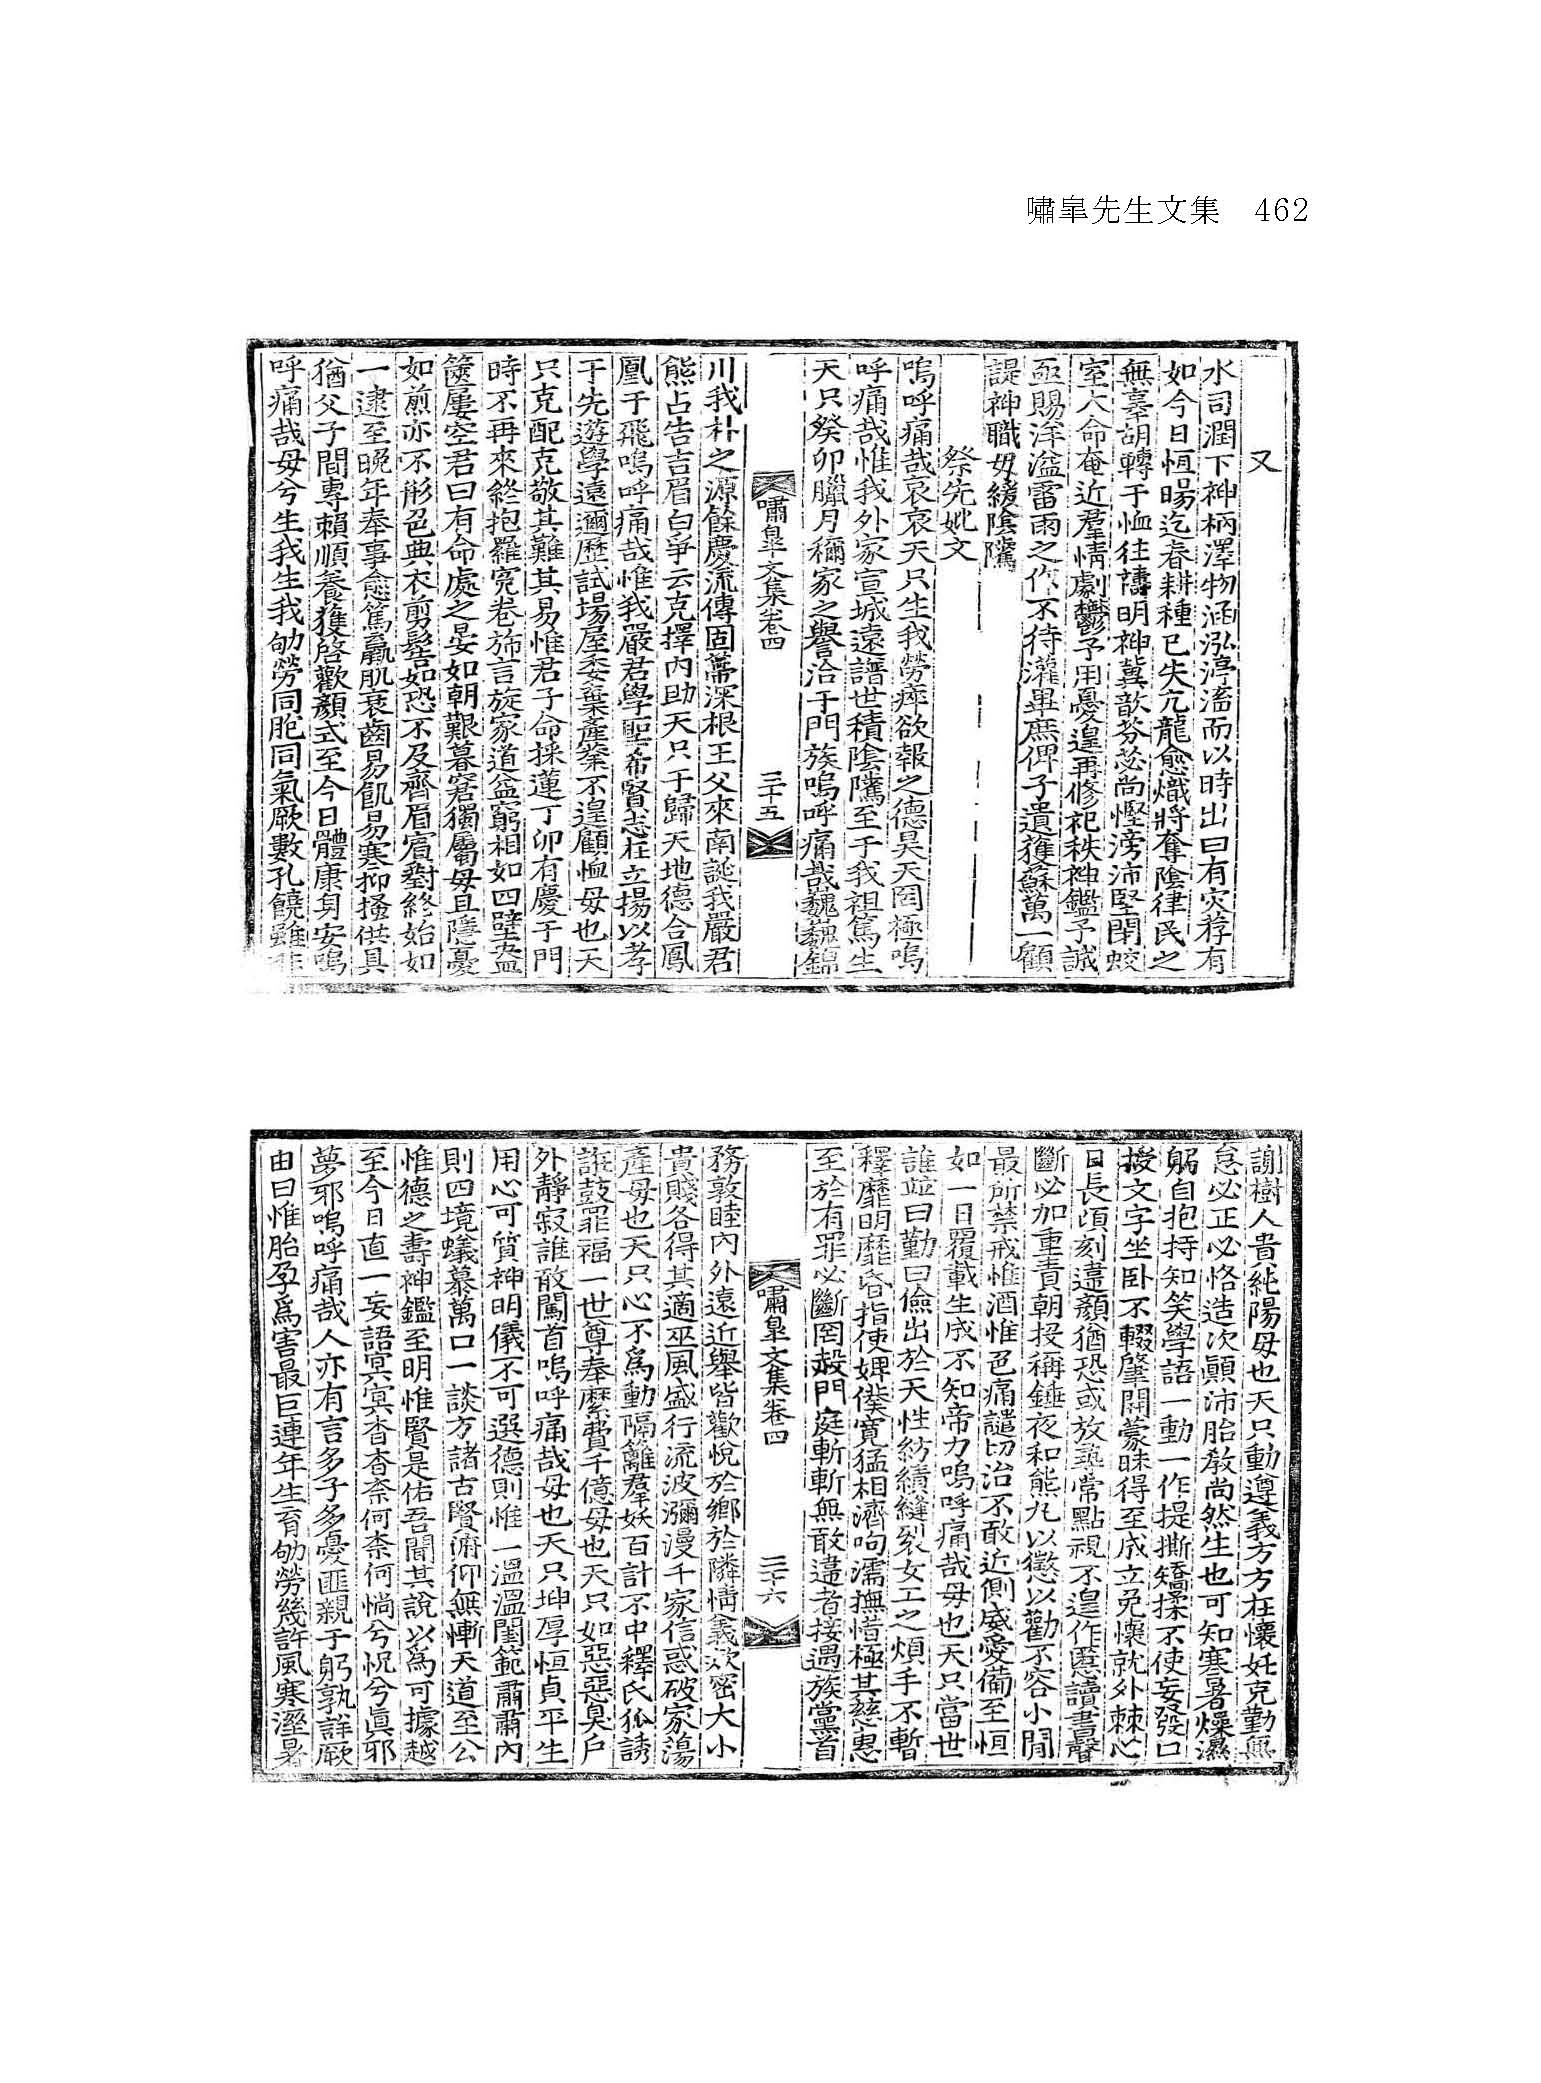 嘯皐先生文集 462
又
水司潤下神柄澤物涵泓渟滀而以時出曰有灾荐有
如今日恒暘迄春耕種已失亢龍愈熾將奪陰律民之
無辜胡轉于恤往禱明神冀歆芬苾尚慳滂沛堅閉蛟
室大命奄近羣情劇鬱予用憂遑再修祀秩神鑑予誠
亟賜洋溢雷雨之作不待灌畢庶俾孑遺獲蘇萬一顧
諟神職毋緩陰騭
祭先妣文
嗚呼痛哉哀哀天只生我勞瘁欲報之德昊天罔極嗚
呼痛哉惟我外家宣城遠譜世積陰騭至于我祖篤生
天只癸卯臘月穪家之譽洽于門族嗚呼痛哉巍巍錦
嘯皐文集卷四 三十五
川我朴之源餘慶流傳固蔕深根王父來南誕我嚴君
熊占告吉眉白爭云克擇內助天只于歸天地德合鳳
凰于飛嗚呼痛哉惟我嚴君學聖希賢志在立揚以孝
于先遊學遠邇歷試場屋委棄產業不遑顧恤母也天
只克配克敬其難其易惟君子命採蓮丁卯有慶于門
時不再來終抱羅寃卷斾言旋家道益窮相如四壁盎
篋屢空君曰有命處之晏如朝艱暮窘獨屬母且隱憂
如煎亦不形色典衣剪髢如恐不及齊眉賓對終始如
一逮至晚年奉事愈篤羸肌衰齒易飢易寒抑搔供具
猶父子間專賴順養獲啓歡顏式至今日體康身安嗚
呼痛哉母兮生我生我劬勞同胞同氣厥數孔饒雖非
謝樹人貴純陽母也天只動遵義方方在懷妊克勤無
怠必正必恪造次顚沛胎敎尚然生也可知寒暑燥濕
躬自抱持知笑學語一動一作提撕矯揉不使妄發口
授文字坐卧不輟肇開蒙昧得至成立免懷就外棘心
日長頃刻違顏猶恐或放墊常點視不遑作慝讀書聲
斷必加重責朝投稱錘夜和熊丸以懲以勸不容小閒
最所禁戒惟酒惟色痛譴切治不敢近側威愛備至恒
如一日覆載生成不知帝力嗚呼痛哉母也天只當世
誰竝曰勤曰儉出於天性紡績縫裂女工之煩手不暫
釋靡明靡昏指使婢僕寬猛相濟呴濡撫惜極其慈惠
至於有罪必斷罔赦門庭斬斬無敢違者接遇族黨首
嘯皐文集卷四 三十六
務敦睦內外遠近擧皆歡悅於鄕於隣情義欵密大小
貴賤各得其適巫風盛行流波瀰漫千家信惑破家蕩
產母也天只心不爲動隔籬羣妖百計不中釋氏狐誘
誑鼓罪福一世尊奉縻費千億母也天只如惡惡臭戶
外靜寂誰敢闖首嗚呼痛哉母也天只坤厚恒貞平生
用心可質神明儀不可選德則惟一溫溫閨範肅肅內
則四境蟻慕萬口一談方諸古賢俯仰無慚天道至公
惟德之壽神鑑至明惟賢是佑吾聞其說以爲可據越
至今日直一妄語冥冥杳杳柰何柰何惝兮怳兮眞邪
夢邪嗚呼痛哉人亦有言多子多憂匪親于躬孰詳厥
由曰惟胎孕爲害最巨連年生育劬勞幾許風寒溼暑